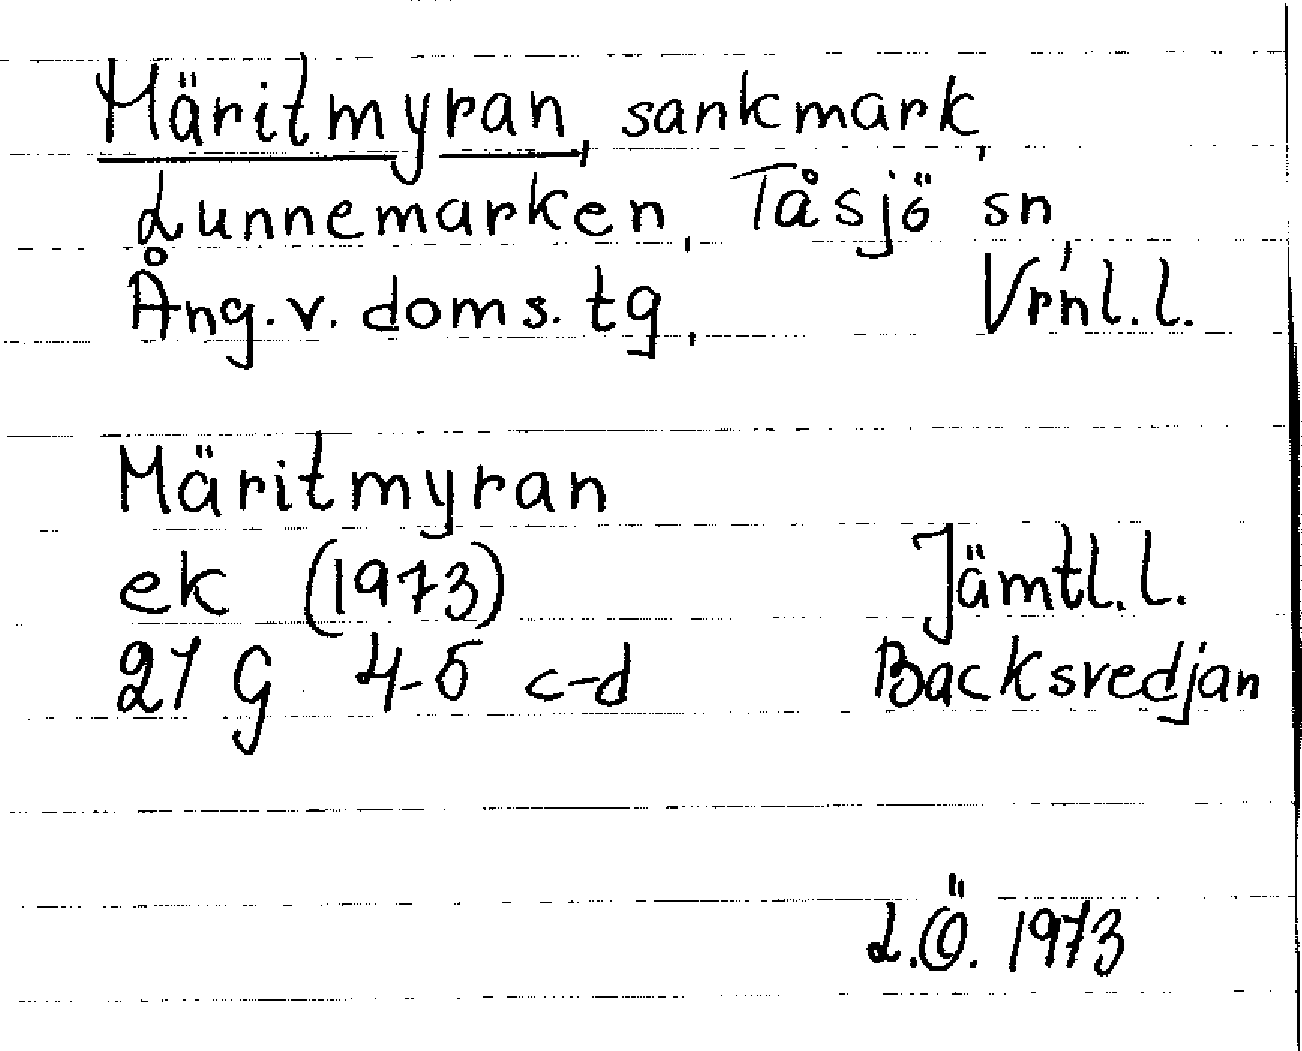 Märitmyran, sankmark,
Lunnemarken, Tåsjö sn,
Ång. v. doms. tg, Vrnl. l.
Märitmyran
ek (1973) Jämtl. l.
21 G 4-5 c-d Backsvedjan
L.Ö. 1973